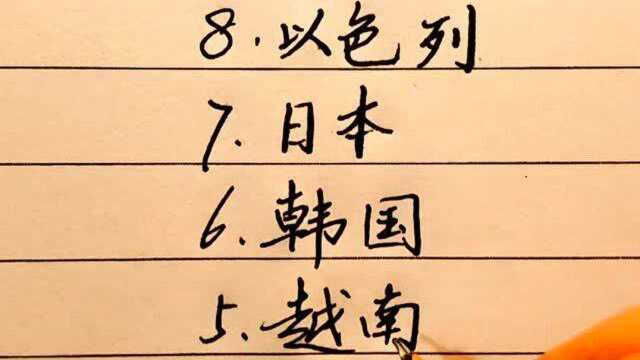 8.以色列
7.日本
6.韩国
5.越南